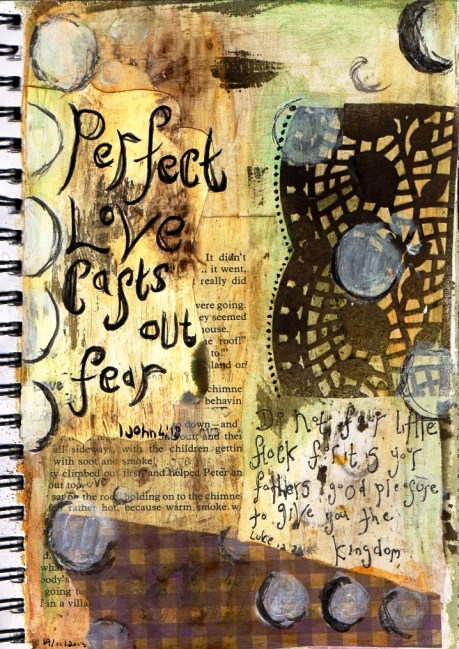 Perfect
Love
Casts
out
fear
1 John 4:18
It didn't
it went,
really did
were going.
ey seemed
house.
he roof!"
to!"
land or
chimne
behavin
down—and
out, and ther
all sideways, with the children gettin
with soot and smoke.
y climbed out first, and helped Peter an
out too.
sat on the roof, holding on to the chimne
rather hot, because warm smoke w
what
body's
going to
in a villa
Do not fear little
flock for it's your
fathers good pleasure
to give you the
kingdom
Luke 12